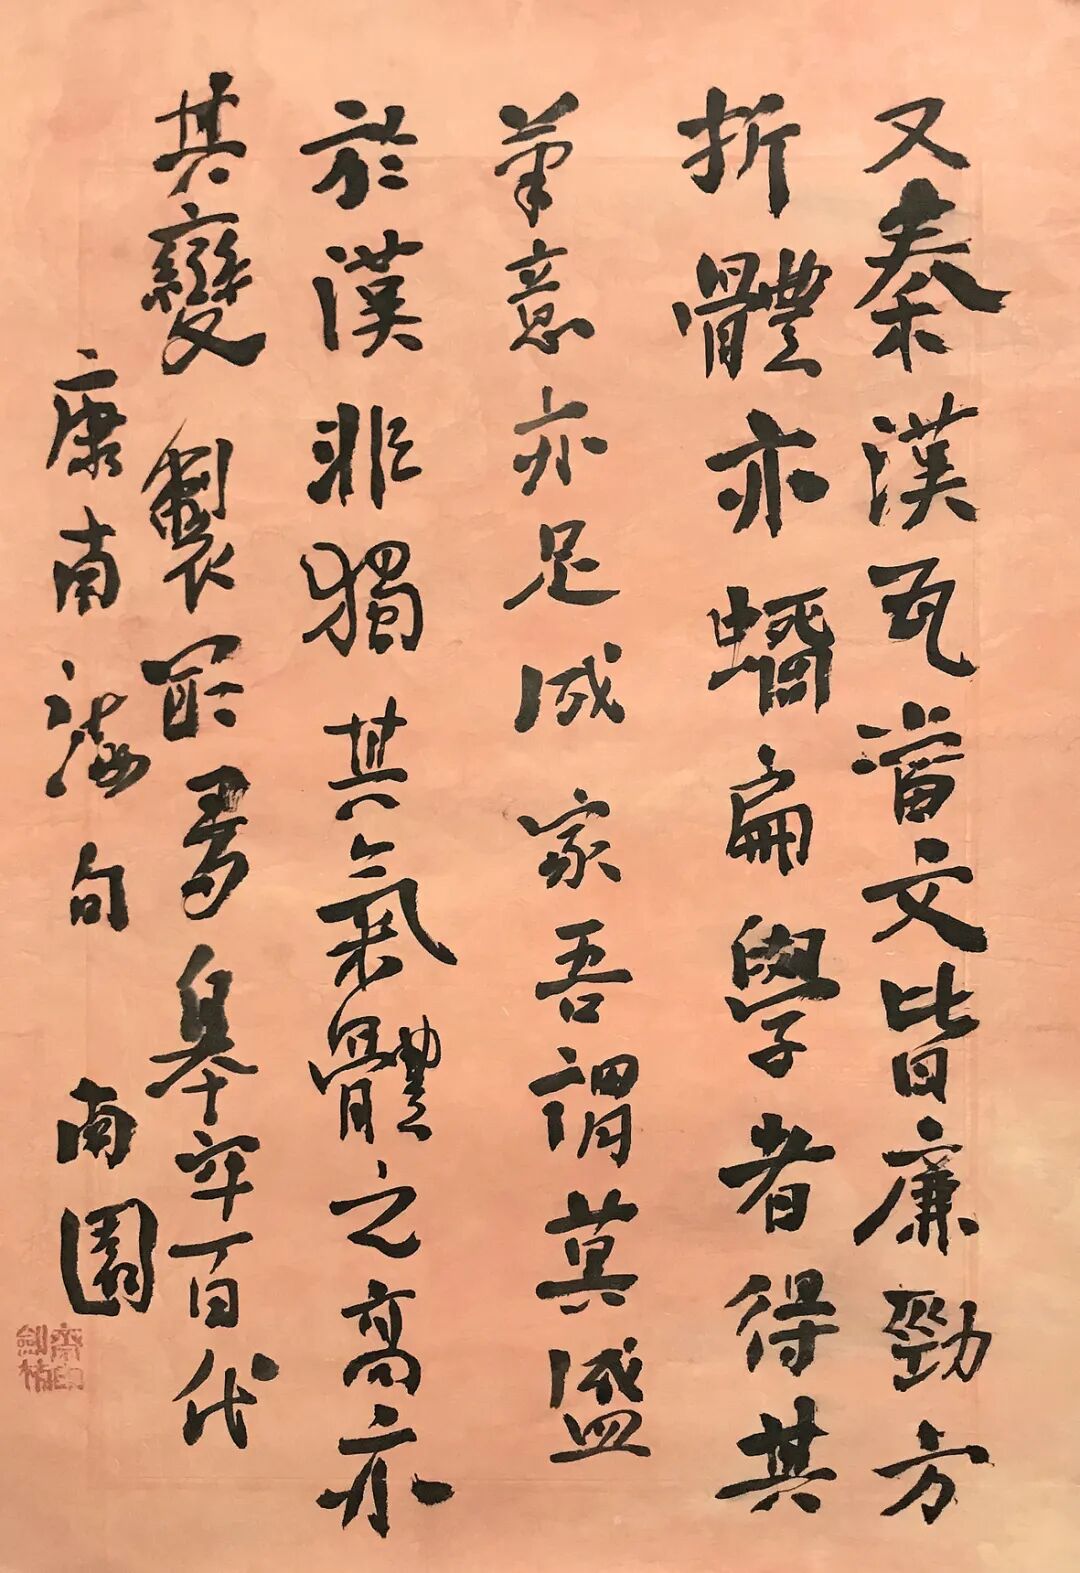 又秦漢瓦當文皆廉勁方
折體亦扁學者得其
筆意亦足成家吾謂莫盛
於漢非獨其氣體之高亦
其變製最多皋牢百代
康南海句 南園